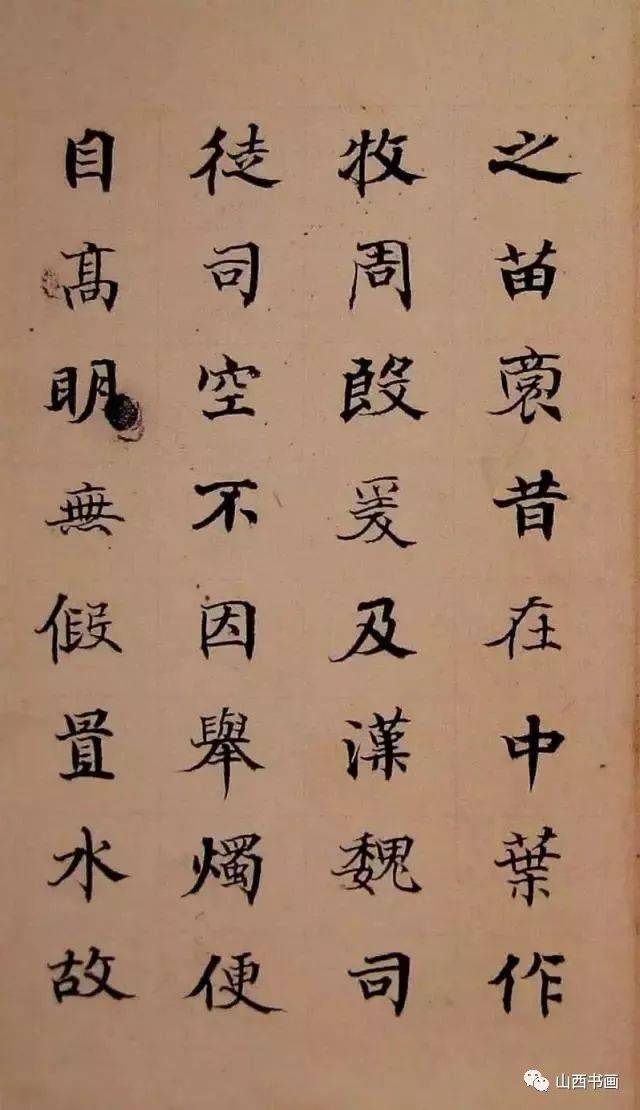 之苗裔昔在中葉作
牧周殷爰及漢魏司
徒司空不因舉燭便
自高明無假置水故
山西书画